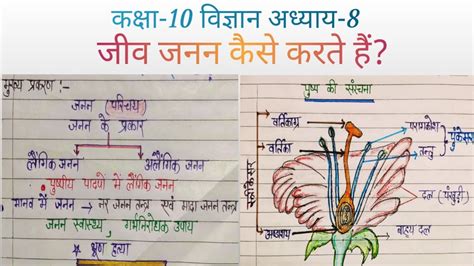 कक्षा-10 विज्ञान अध्याय-8
जीव जनन कैसे करते हैं?
मुख्य प्रकरण :-
जनन (परिचय)
जनन के प्रकार
लैंगिक जनन
अलैंगिक जनन
पुष्पीय पादपों में लैंगिक जनन
मानव में जनन → नर जनन तन्त्र एवं मादा जनन तन्त्र
जनन स्वास्थ्य, गर्भनिरोधक उपाय
भ्रूण हत्या
पुष्प की संरचना
वर्तिकाग्र
वर्तिका
अण्डाशय
स्त्रीकेसर
परागकोश
तन्तु
पुंकेसर
दल (पंखुड़ी)
बाह्य दल